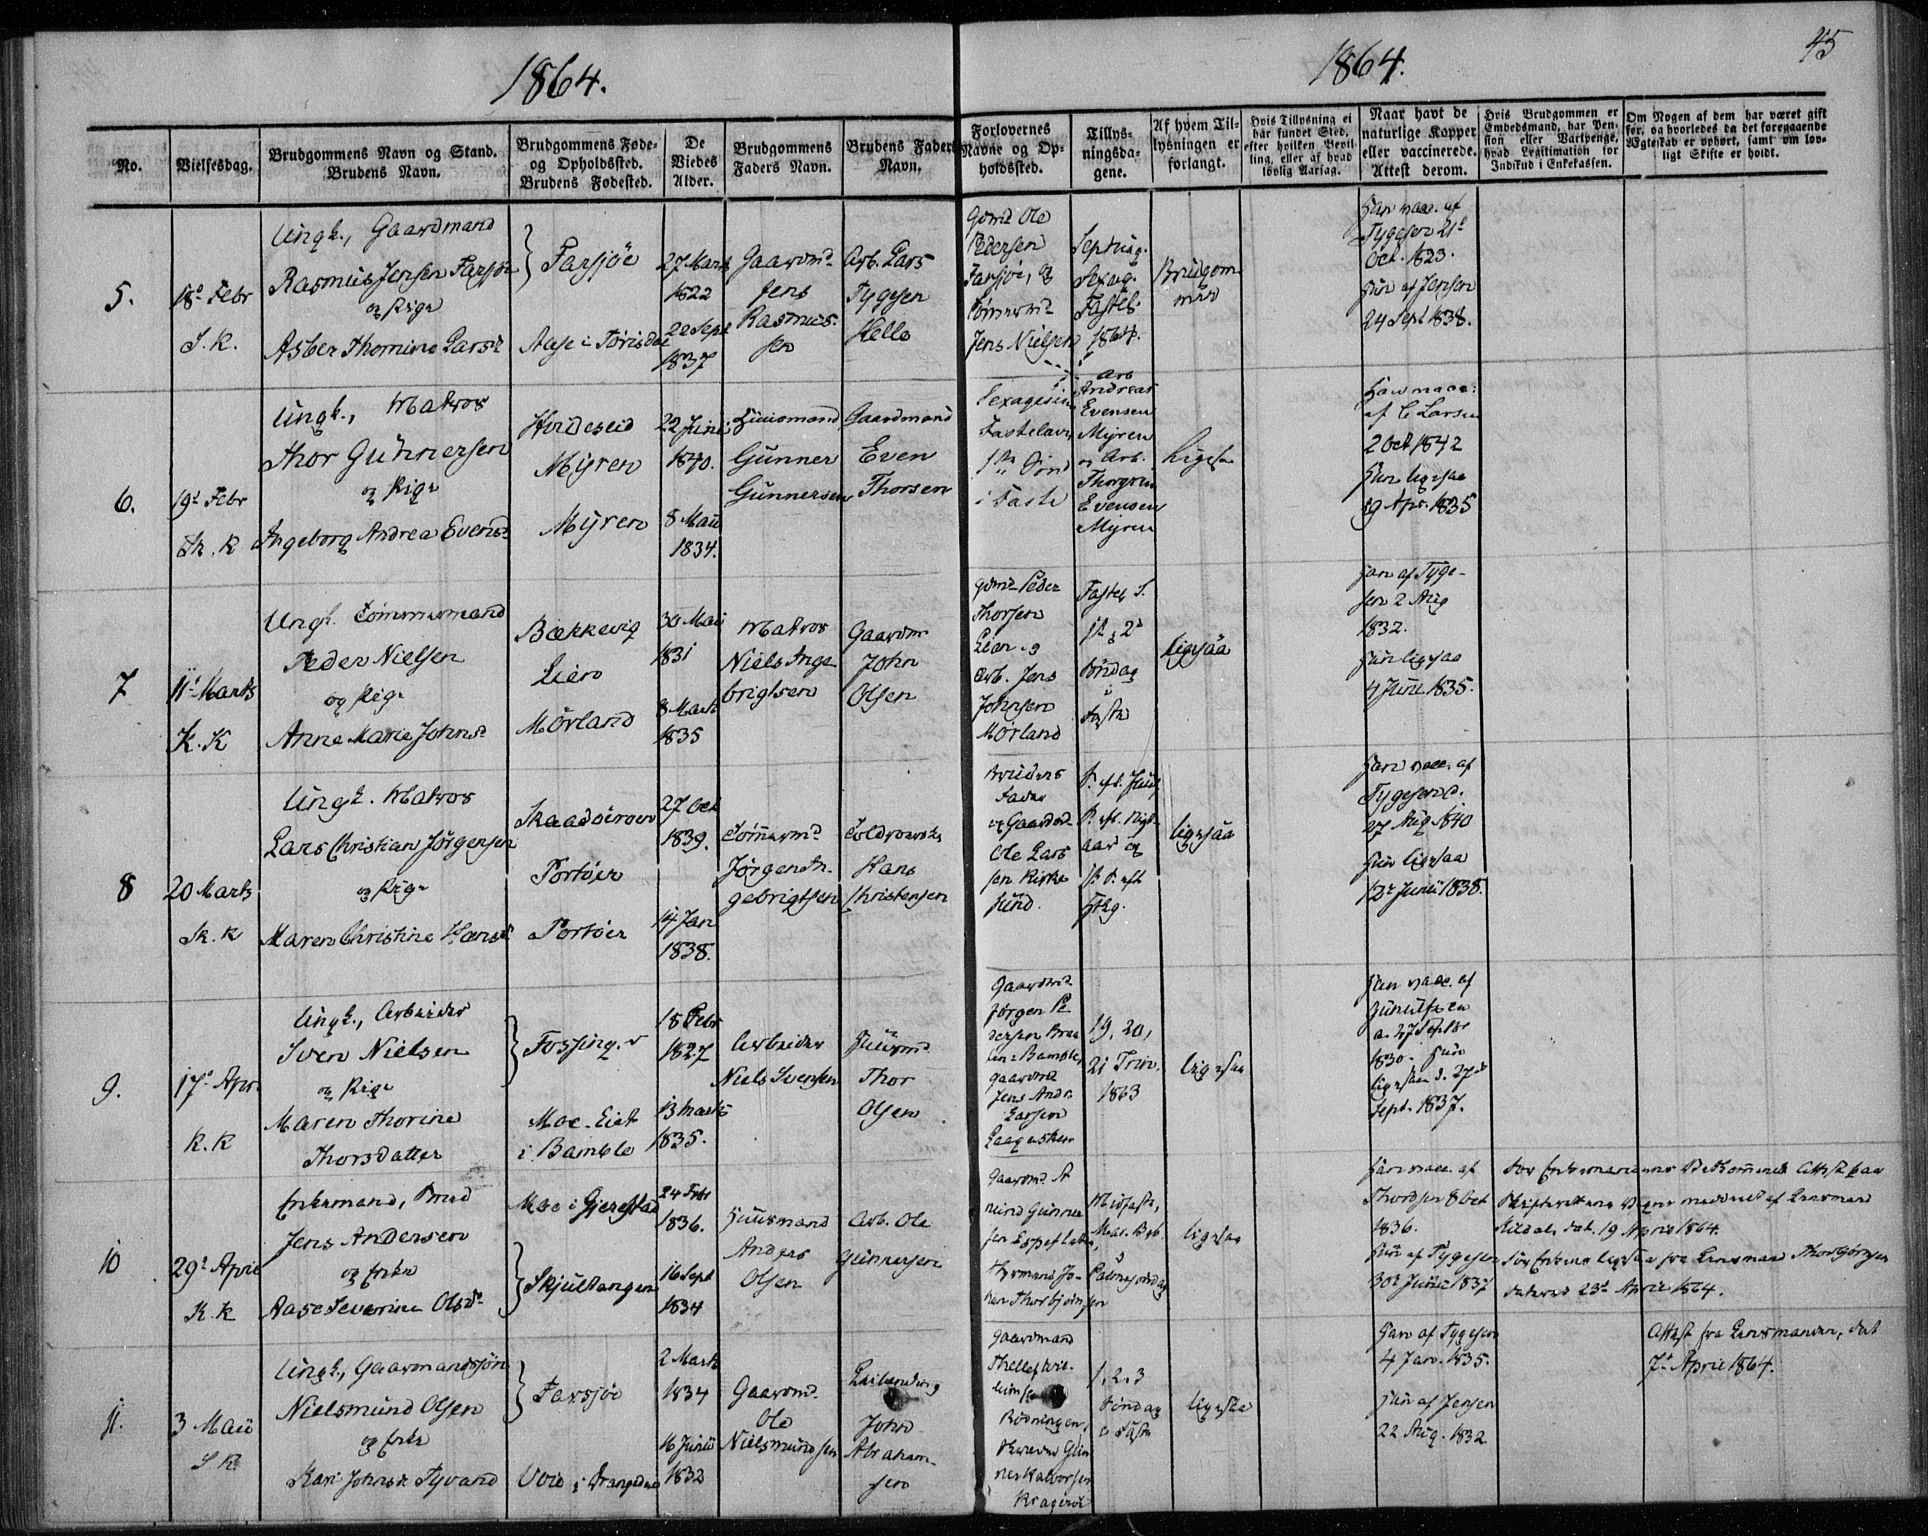 1864.
1864.
45
No.
Vielsesdag.
Brudgommens Navn og Stand.
Brudens Navn.
Brudgommens Føde-
og Opholdssted.
Brudens Fødested.
De
Viedes
Alder.
Brudgommens
Faders Navn.
Brudens Faders
Navn.
Forlovernes
Navne og Op-
holdssted.
Tillys-
ningsda-
gene.
Af hvem Til-
lysningen er
forlangt.
Hvis Tillysning ei
har fundet Sted,
efter hvilken Bevil-
ling, eller af hvad
lovlig Aarsag.
Naar havt de
naturlige Kopper
eller vaccinerede.
Attest derom.
Hvis Brudgommen er
Embedsmand, har Pen-
sion eller Vartpenge,
hvad Legitimation for
Indskud i Enkekassen.
Om Nogen af dem har været gift
før, og hvorledes da det foregaaende
Ægteskab er ophørt, samt om lov-
ligt Skifte er holdt.
5.
18de Febr
S. K.
Ungk., Gaardmand
Rasmus Jensen Farsjøe
og Pige
Asber Thomine Larsd
Farsjøe
Aase i Tørisdal
27 Marts
1822
20 Sept
1837
Gaardmd
Jens
Rasmus-
sen
Arb. Lars
Tygesen
Helle
Gdmd Ole
Pedersen
Farsjøe, og
Tømermd
Jens Nielsen
Septuag.
Sexag.
Fastel.
1864.
Brudgom
men
Han vacc. af
Tygesen 21d
Oct. 1823.
Hun af Jensen
24 Sept 1838.
6.
19d Febr
Sk. K
Ungk., Matros
Thor Gunnersen
og Pige
Ingeborg Andrea Evensd
Hvideseid
Myren
Myren
22 Juni
1840.
8 Maii
1834.
Huusmand
Gunner
Gunnersen
Gaardmand
Even
Thorsen
Sexagesim
Fastelavn
1ste Sønd
i Faste
Arb
Andreas
Evensen
Myren
og Arb.
Thorgrim
Evensen
Myren
Ligesaa
Han vacc:
af C Larsen
2 Oct 1842
Hun ligesaa
29 Apr. 1835
7
11d Marts
K. K
Ungk. Tømmermand
Peder Nielsen
og Pige
Anne Marie Johnsd
Bækkevig
Lien
Mørland
30 Maii
1831
8 Marts
1835
Matros
Niels Inge
brigtsen
Gaardm.
John
Olsen
Gdmd Peder
Thorsen
Lian og
Arb. Jens
Johnsen
Mørland
Fastel S.
1ste 2d
Søndag
i
Faste
ligesaa
Han af Tyge-
sen 2 Aug
1832.
Hun ligesaa
4 Juni 1835.
8
20 Marts
Sk. K
Ungk. Matros
Lars Christian Jørgensen
og Pige
Maren Christine Hansd
Skaadøiroen
Portøer
Portøer
27 Oct
1839.
14 Jan
1838.
Tømermd
Jørgen In-
gebrigtsen
Toldroerske
Hans
Christensen
Brudens
Fader
og Gaardmd
Ole Lars
sen Kirke
sund.
aar og
ligesaa
Han vacc. af
Tygesen d.
27 Aug 1840
Hun ligesaa
12t Junii 1838.
9.
17d Apr.
K. K
Ungk., Arbeider
Sven Nielsen
og Pige
Maren Thorine
Thorsdatter
Fossing.
Moe-Eiet
i Bamble
18 Febr
1827
13 Marts
1835.
Arbeider
Niels Svensen
Huusmd
Thor
Olsen
Gaardmd
Jørgen Pe
dersen
Bamble,
Gaardmd
Jens Andr.
Larsen
19, 20,
21 Trin.
1863
ligesaa
Han vacc. af
a. 27 Septbr
1830. Hun
ligesaa d. 27d
Sept. 1837.
10
29d April
K. K
Enkemand,
Jens Andersen
og Enke
Aase Severine Olsdr
Moe i Gjerestad
Skjultangen
24 Febr
1836.
16 Sept
1834
Huusmand
Anders
Olsen
Arb. Ole
Gunnersen
Gaardmd
mund Gunner
sen
Midfaste,
Mar. Beb.
Palmesøndag
ligesaa
Han vacc. af
Thordsen 8 Oct
1836.
Hun af Tygesen
30d Junii 1837
For Enkemanden Attest fra
Skifterettens Vegne meddeelt af Lensmand
dat. 19 April 1864.
For Enken ligesaa fra Lensmand
dateret 23d April 1864.
11.
3 Maii
S K
Ungk., Gaardmandssøn
Nielsmund Olsen
og Enke
Kari Johnsd Tyvand
Farsjøe
i Drangedal
2 Marts
1834
16 Junii
1832
Gaardmd.
Ole
Nielsmundsen
Leilænding
John
Abraham-
sen
Gaardmand
Kragerøe
1, 2, 3
Søndag
i Faste
ligesaa
Han af Tygesen
4 Jan. 1835.
Hun af Jensen
22 Aug. 1832
Attest fra Lensmanden, dat
7d April 1864.